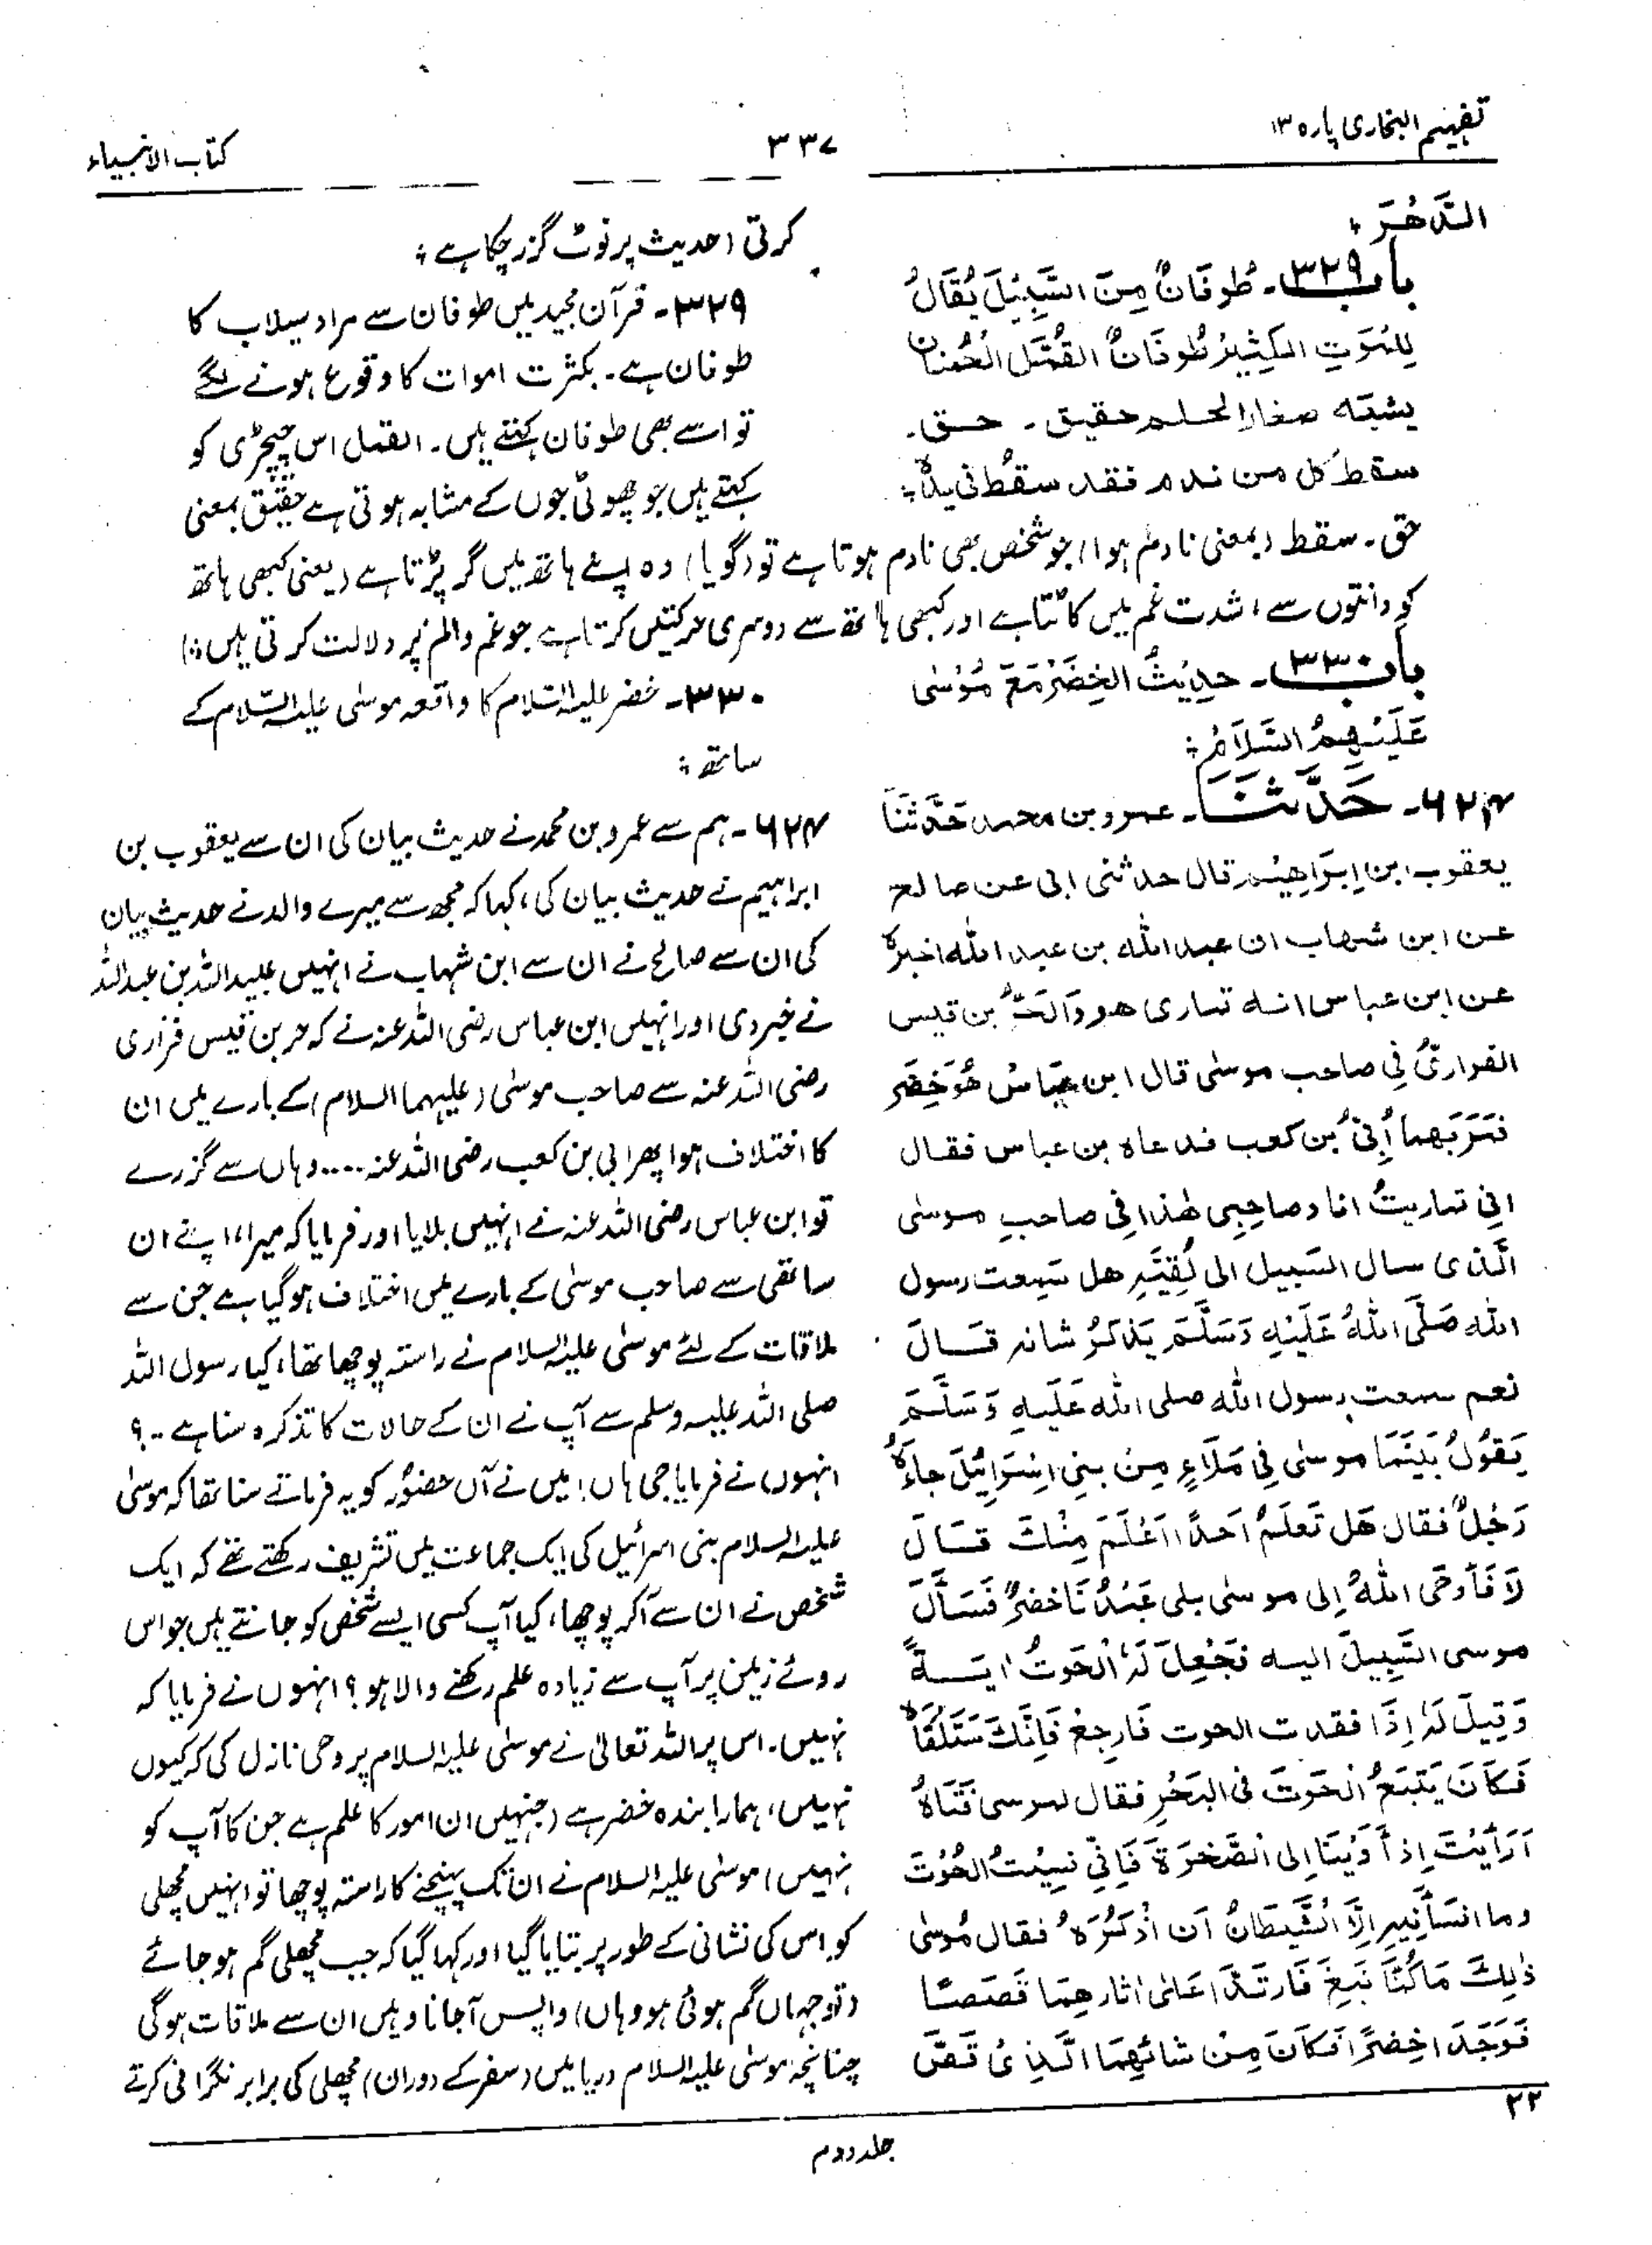 تفہیم البخاری پارہ ۱۳
۳۳۷
کتاب الانبیاء
الدَّهْرَ ؛
باب ۳۲۹۔ طُوفَانٌ مِنَ السَّبِيْلَ يُقَالُ
لِلْمَوْتِ الكِثِيْرُ طُوفَانٌ القُمَّل الْحُمْنان
يشبه صغار الحلم حقيق ۔ حق ۔
سقط كل من ندم فقد سقط فی يدهٖ ؛
کرتی (حدیث پر نوٹ گزر چکا ہے ؛
۳۲۹۔ قرآن مجید میں طوفان سے مراد سیلاب کا
طوفان ہے۔ بکثرت اموات کا وقوع ہونے لگے
تو اسے بھی طوفان کہتے ہیں۔ القمل اس چیچڑی کو
کہتے ہیں جو چھوٹی جوں کے مشابہ ہوتی ہے حقیق بمعنی
حق۔ سقط (بمعنی نادم ہوا) جو شخص بھی نادم ہوتا ہے تو (گویا) وہ اپنے ہاتھ میں گر پڑتا ہے (یعنی کبھی ہاتھ
کو دانتوں سے، شدت غم میں کاٹتا ہے اور کبھی ہاتھ سے دوسری حرکتیں کرتا ہے جو غم والم پر دلالت کرتی ہیں ؛)
باب ۳۳۰۔ حدِيْثُ الخِضَرْ مَعَ مُوْسٰی
عَلَيْهِمُ السَّلَامُ ؛
۶۲۴۔ حَدَّثَنَا۔ عمرو بن محمد حَدَّثَنَا
يعقوب ابن اِبْرَاهِيْم قال حدثنی ابی عن صالح
عن ابن شهاب ان عبد الله بن عبد الله اخبرهٗ
عن ابن عباس انه تماری هو وَالحُرُّ بن قيس
الفراریُّ فِی صاحب موسٰی قال ابن عباسُ هُوَ خِضَر
فَمَرَّ بَهما أُبَیُّ بن كعب فدعاه بن عباس فقال
اِنِّی تماريتُ انا وصاحِبِی هٰذا فِی صاحبِ موسٰی
الَّذی سال السَّبيل الی لُقِيِّهِ هل سَمِعت رسول
الله صَلَّی اللهُ عَلَيْهِ وَسَلَّمَ يَذكُرُ شانه قَالَ
نعم سمعت رسول الله صلی الله عَلَيهِ وَسَلَّمَ
يَقوُلُ بَيْنَمَا موسٰی فِی مَلَاءٍ مِنْ بنِی اِسْرَائِيْلَ جاءَهٗ
رَجُلٌ فقال هَل تَعلَمُ اَحداً اَعْلَمَ مِنْكَ قَالَ
لَا فَأَوحَی اللهُ اِلی موسٰی بلی عَبْدُنَا خضرٌ فَسَأَلَ
موسی السَّبِيلَ اليه فَجُعِلَ لَهٗ الْحُوتُ ايَةً
وَقِيلَ لَهٗ اِذَا فقدت الحوت فَارجِعْ فَاِنَّكَ سَتَلْقَاهٗ
فَكَانَ يَتبَعُ الْحَوتَ فی البَحْرِ فقال لموسی فَتَاهُ
اَرَأَيْتَ اِذ أَوَيْنَا اِلی الصَّخرَةَ فَاِنِّی نسِيْتُ الحُوْتَ
وما انسَانِيهِ اِلَّا الشَّيطَانُ اَن اَذْكُرَهٗ فقال مُوسٰی
ذٰلِكَ مَا كُنَّا نَبغِ فَارتَدَّا عَلٰی اثارِهِمَا قَصَصًا
فَوَجَدَا خِضْرًا فَكَانَ مِنْ شانِهِمَا الَّذِیْ قَصَّ
۳۳۰۔ خضر علیہ السلام کا واقعہ موسٰی علیہ السلام کے
ساتھ ؛
۶۲۴۔ ہم سے عمرو بن محمد نے حدیث بیان کی ان سے یعقوب بن
ابراہیم نے حدیث بیان کی، کہا کہ مجھ سے میرے والد نے حدیث بیان
کی ان سے صالح نے ان سے ابن شہاب نے انہیں عبید اللہ بن عبد اللہ
نے خبر دی اور انہیں ابن عباس رضی اللہ عنہ نے کہ حر بن قیس فزاری
رضی اللہ عنہ سے صاحب موسٰی (علیہما السلام) کے بارے میں ان
کا اختلاف ہوا پھر ابی بن کعب رضی اللہ عنہ ۔۔۔۔ وہاں سے گزرے
تو ابن عباس رضی اللہ عنہ نے انہیں بلایا اور فرمایا کہ میرا، اپنے ان
ساتھی سے صاحب موسٰی کے بارے میں اختلاف ہو گیا ہے جن سے
ملاقات کے لئے موسٰی علیہ السلام نے راستہ پوچھا تھا، کیا رسول اللہ
صلی اللہ علیہ وسلم سے آپ نے ان کے حالات کا تذکرہ سنا ہے ۔۔؟
انہوں نے فرمایا جی ہاں! میں نے آں حضورؐ کو یہ فرماتے سنا تھا کہ موسٰی
علیہ السلام بنی اسرائیل کی ایک جماعت میں تشریف رکھتے تھے کہ ایک
شخص نے ان سے آکر پوچھا، کیا آپ کسی ایسے شخص کو جانتے ہیں جو اس
روئے زمین پر آپ سے زیادہ علم رکھنے والا ہو؟ انہوں نے فرمایا کہ
نہیں۔ اس پر اللہ تعالیٰ نے موسٰی علیہ السلام پر وحی نازل کی کہ کیوں
نہیں، ہمارا بندہ خضر ہے (جنہیں ان امور کا علم ہے جن کا آپ کو
نہیں) موسٰی علیہ السلام نے ان تک پہنچنے کا راستہ پوچھا تو انہیں مچھلی
کو اس کی نشانی کے طور پر بتایا گیا اور کہا گیا کہ جب مچھلی گم ہو جائے
(تو جہاں گم ہوئی ہو وہاں) واپس آ جانا وہیں ان سے ملاقات ہوگی
چنانچہ موسٰی علیہ السلام دریا میں (سفر کے دوران) مچھلی کی برابر نگرانی کرتے
۲۲
جلد دوم